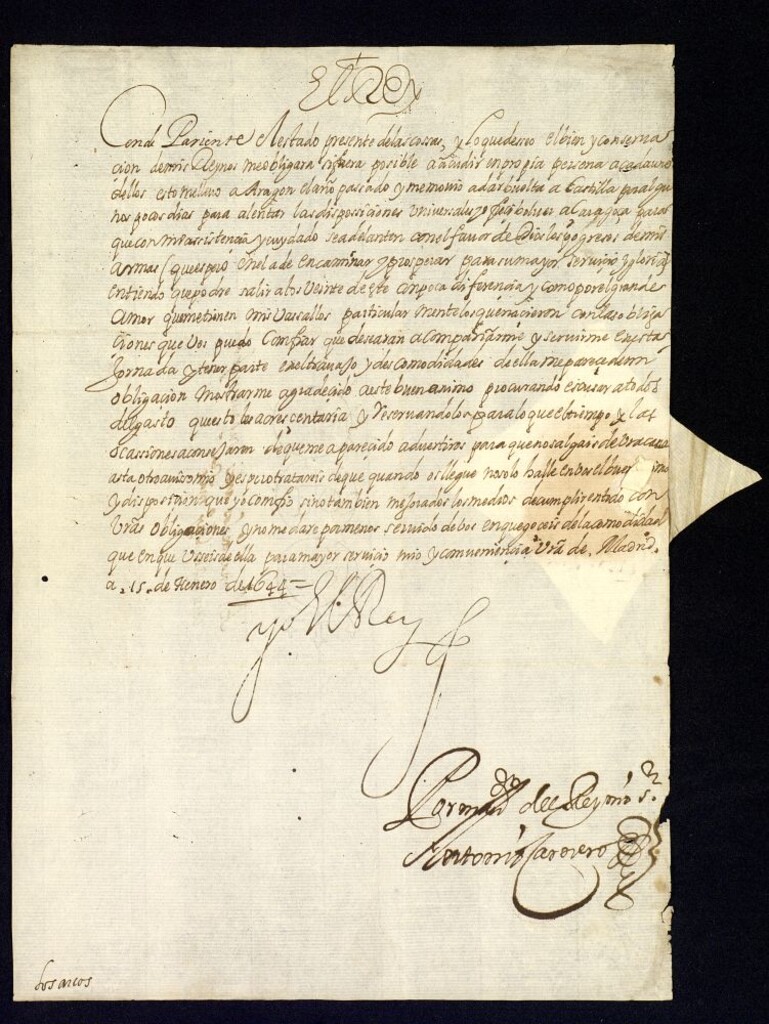 El Rey
Conde Pariente El estado presente de las cossas, y lo que desseo el bien y conserua
cion de mis Reynos me obligara si fuera posible a acudir en propia persona a cada uno
dellos esto me lleuo a Aragon el año passado y me mouio a dar buelta a Castilla por algu
nos pocos dias para alentar las disposiciones universales, y assi bolver a Caragoça para
que con mi assistencia y cuydado se adelanten con el fauor de Dios los progresos de mis
Armas (que espero en el a de encaminar y prosperar para su mayor servicio y gloria)
entiendo que podre salir a los veinte de este con poca diferencia, y como por el grande
Amor que me tienen mis Vassallos particular mente los que nacieron con las obliga
ciones que Vos puedo Confiar que desearan acompañarme y seruirme en esta
Jornada, y tener parte en el trauajo y descomodidades de ella me parece de mi
obligacion mostrarme agradecido a este buen animo procurando escusar a todos
del gasto que esto les acrescentaria y reseruandolos para lo que el tiempo y las
Ocassiones aconsejaren de que me a parecido advertiros para que no salgais de
asta otro auiso mio, y espero tratareis de que quando os llegue no solo halle en vos el buen animo
y disposicion que yo confio sino tambien mejorados los medios de cumplir en todo con
Vras obligaciones, y no me dare por menos seruido de vos en que goceis de la comodidad
que en que useis de ella para mayor seruicio mio y conueniencia Vra de Madrid.
a .15. de Henero de 1644=
yo El Rey
Por mdo del Rey nro sr.
Antonio Carnero
los arcos